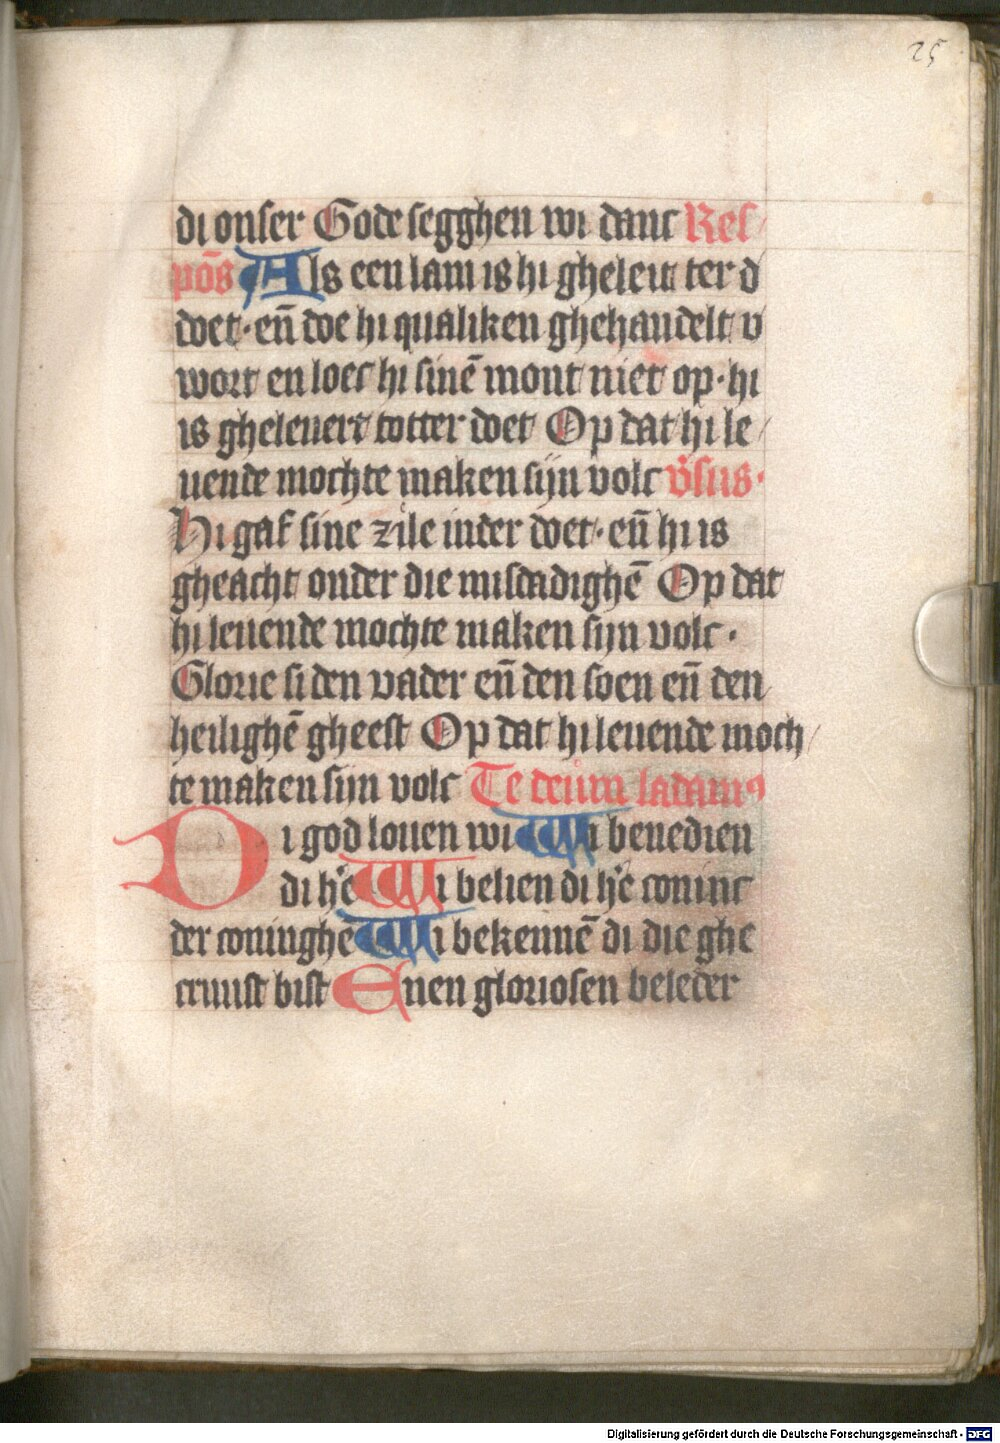 25
di onser Gode segghen wi danc Res
põs Als een lam is hi gheleit ter d
doet · eñ doe hi qualiken ghehandelt v
wort en loec hi sinē mont niet op · hi
is gheleuert totter doet Op dat hi le
uende mochte maken sijn volc v̄sus ·
Hi gaf sine zile inder doet · eñ hi is
gheacht onder die misdadighē Op dat
hi leuende mochte maken sijn volc ·
Glorie si den vader eñ den soen eñ den
heilighē gheest Op dat hi leuende moch
te maken sijn volc Te deum ladamꝰ
Di god louen wi Wi benedien
di hᵉe Wi belien di hᵉe coninc
der coninghē Wi bekennē di die ghe
cruust bist Enen gloriosen beleder
Digitalisierung gefördert durch die Deutsche Forschungsgemeinschaft - DFG